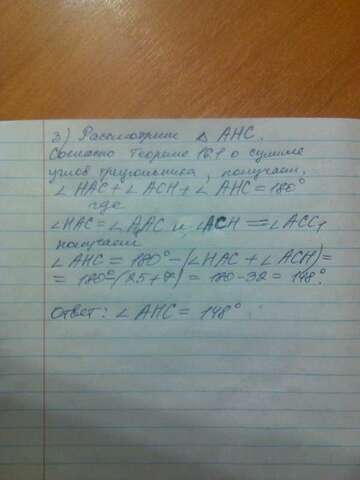 3) Рассмотрим △ AHC.
Согласно Теореме 16.1 о сумме
углов треугольника, получаем,
∠ HAC + ∠ ACH + ∠ AHC = 180°
где
∠HAC = ∠ A₁AC и ∠ACH = ∠ACC₁
получаем
∠ AHC = 180° - (∠HAC + ∠ACH) =
= 180° - (25+7) = 180 - 32 = 148°.
Ответ: ∠ AHC = 148°.